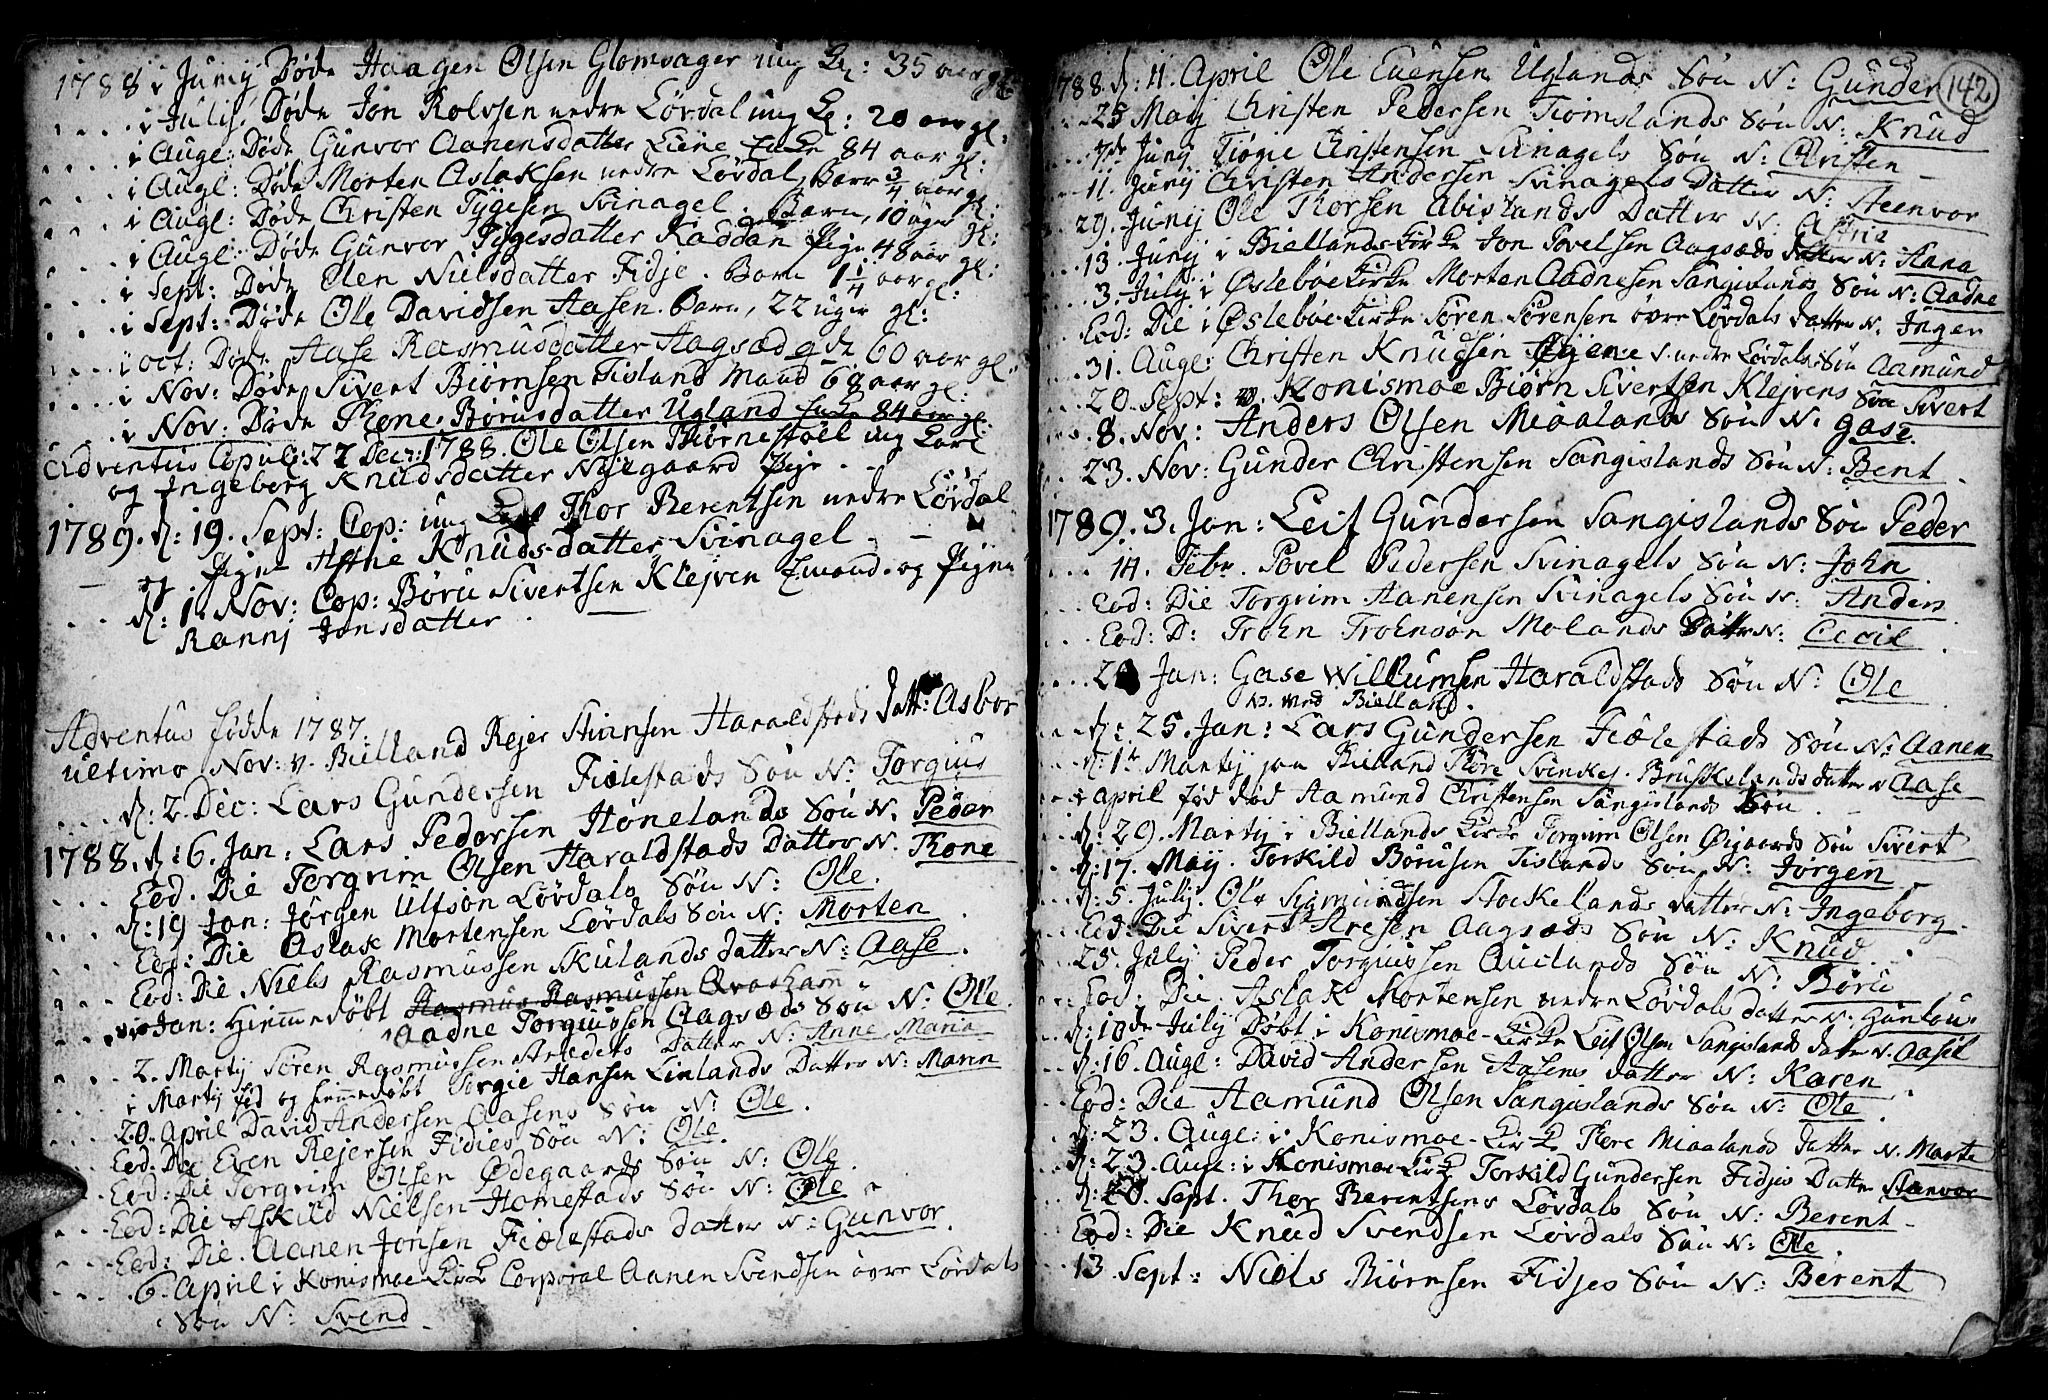 1788 i Junij Døde Haagen Olsen Glomsager ung K: 35 aar gl:
i Julij Døde Jon Rolvsen nedre Lövdal ung K: 20 aar gl:
i Augl: Døde Gunvor Aanensdatter Liene Enke 84 aar gl:
i Augl: Døde Morten Aslaksen nedre Lövdal, Barn 3/4 aar gl:
i Augl: Døde Christen Tygesen Svinagel. Barn, 10 uger gl:
i Augl: Døde Gunvor Tygesdatter Raddan Pige 48 aar gl:
i Sept: Døde Olen Nielsdatter Fidje. Barn 1 1/4 aar gl:
i Sept: Døde Ole Davidsen Aasen. Barn, 22 uger gl:
i Oct: Døde Aase Rasmusdatter Aagsæd 60 aar gl:
i Nov: Døde Sivert Biørnsen Tisland Mand 68 aar gl:
i Nov: Døde Thone Børusdatter Ugland Enke 84 aar gl:
Adventus Copul: 27 Decr: 1788. Ole Olsen Biørnestøll ung Karl
og Ingeborg Knudsdatter Nyegaard Pige.
1789. d: 19. Sept: Cop: ung Thor Berentsen nedre Lövdal
og Pigen Knudsdatter Svinagel
d: 1. Nov: Cop: Børu Sivertsen Klejven Emand. og Pigen
Rannj Jonsdatter.
Adventus fødde 1787.
ultimo Nov: v. Bielland Rejer Haraldstads datt: Asbor
d: 2 Dec: Lars Gundersen Fiælestads Søn N: Torgius
1788. d: 6. Jan: Lars Pedersen Hønelands Søn N. Peder
Eod. Die Torgrim Olsen Haraldstads Datter N. Thone
d: 19 Jan: Jørgen Ulfsøn Lövdals Søn N: Ole.
Eod: Die Aslak Mortensen Lövdals Søn N: Morten
Eod: Die Niels Rasmussen Skulands datter N: Aase.
Jan: Hiemmedøbt Rasmus Rasmussen
Aadne Torgiussen Aagsæds Søn N: Ole.
2. Martij Søren Rasmussen Datter N: Anne Maria
i Martij fød og hiemmedøbt Torgie Hansen Linlands Datter N: Maren
20. April David Andersen Aasens Søn N: Ole.
Eod: Die Even Rejersen Fidjes Søn N: Ole
Eod: Die Torgrim Olsen Ødegaards Søn N: Ole
Eod: Die Askild Nielsen Homestads Søn N: Ole
Eod: Die. Aanen Jonsen Fiælestads datter N: Gunvor.
6. April i Konismoe Kirke Corporal Aanen Svendsen øvre Lövdals
Søn N: Svend
142
1788. d: 11. April Ole Evensen Uglands Søn N: Gunder
25 Maij Christen Pedersen Tiomslands Søn N: Knud
7de Junij Tiøgie Christensen Svinagels Søn N: Christen
11. Junij Christen Andersen Svinagels Datter N: Steenvor
29. Junij Ole Thorsen Abislands Datter N:
13. Junij i Biellands Kirke Jon Povelsen Aagsæds datter N: Hana
3. Julij i Øslebøe Kirke Morten Aadnesen Sangislands Søn N: Aadne
Eod: Die i Øslebøe Kirke Søren Sørensen øvre Lövdals datter N. Inger
31. Augl: Christen Knudsen nedre Lövdals Søn Aamund
20. Sept: v. Konismoe Biørn Sivertsen Klejvens Søn Sivert
8. Nov: Anders Olsen Miaalands Søn N. Gase.
23. Nov: Gunder Christensen Sangislands Søn N: Bent
1789. 3. Jan: Leif Gundersen Sangislands Søn Peder
14. Febr. Povel Pedersen Svinagels Søn N: John
Eod: Die Torgrim Aanensen Svinagels Søn N: Anders
Eod: D: Troen Troensøn Molands Datter N: Cecil
Jan: Gase Willumsen Haraldstads Søn N: Ole
v. Bielland.
d: 25. Jan: Lars Gundersen Fiælestads Søn N: Aanen
d: 1te Martij Bielland Tore Bruskelands datter N Aase
i April fød død Aamund Christensen Sangislands Søn
d: 29. Martij i Biellands Kirke Torgrim Olsen Øigaards Søn Sivert
d: 17. Maij. Torkild Børusen Tislands Søn N: Jørgen
d: 5. Julij. Ole Sigmundsen Stockelands datter N: Ingeborg
Eod: Die Sivert Aagsæds Søn N: Knud
25. Julij Peder Torgiussen Auglands Søn N: Børu
Eod: Die: Aslak Mortensen nedre Lövdals datter N: Gunlou
d: 10de Julij Døbt i Konismoe Kirke Leif Olsen Sangislands datter N. Aasel
d: 16. Augl: David Andersen Aasens datter N: Karen
Eod: Die Aamund Olsen Sangislands Søn N: Ole
d: 23. Augl: i Konismoe Kirke Tore Miaalands datter N. Marte
d: 23. Augl: i Konismoe Kirke Torkild Gundersen Fidjes Datter Stanvor
d: 20. Sept. Thor Berentsens Lövdals Søn N: Berent
Eod: Die Knud Svendsen Lövdals Søn N: Ole
13 Sept: Niels Biørnsen Fidjes Søn N: Berent